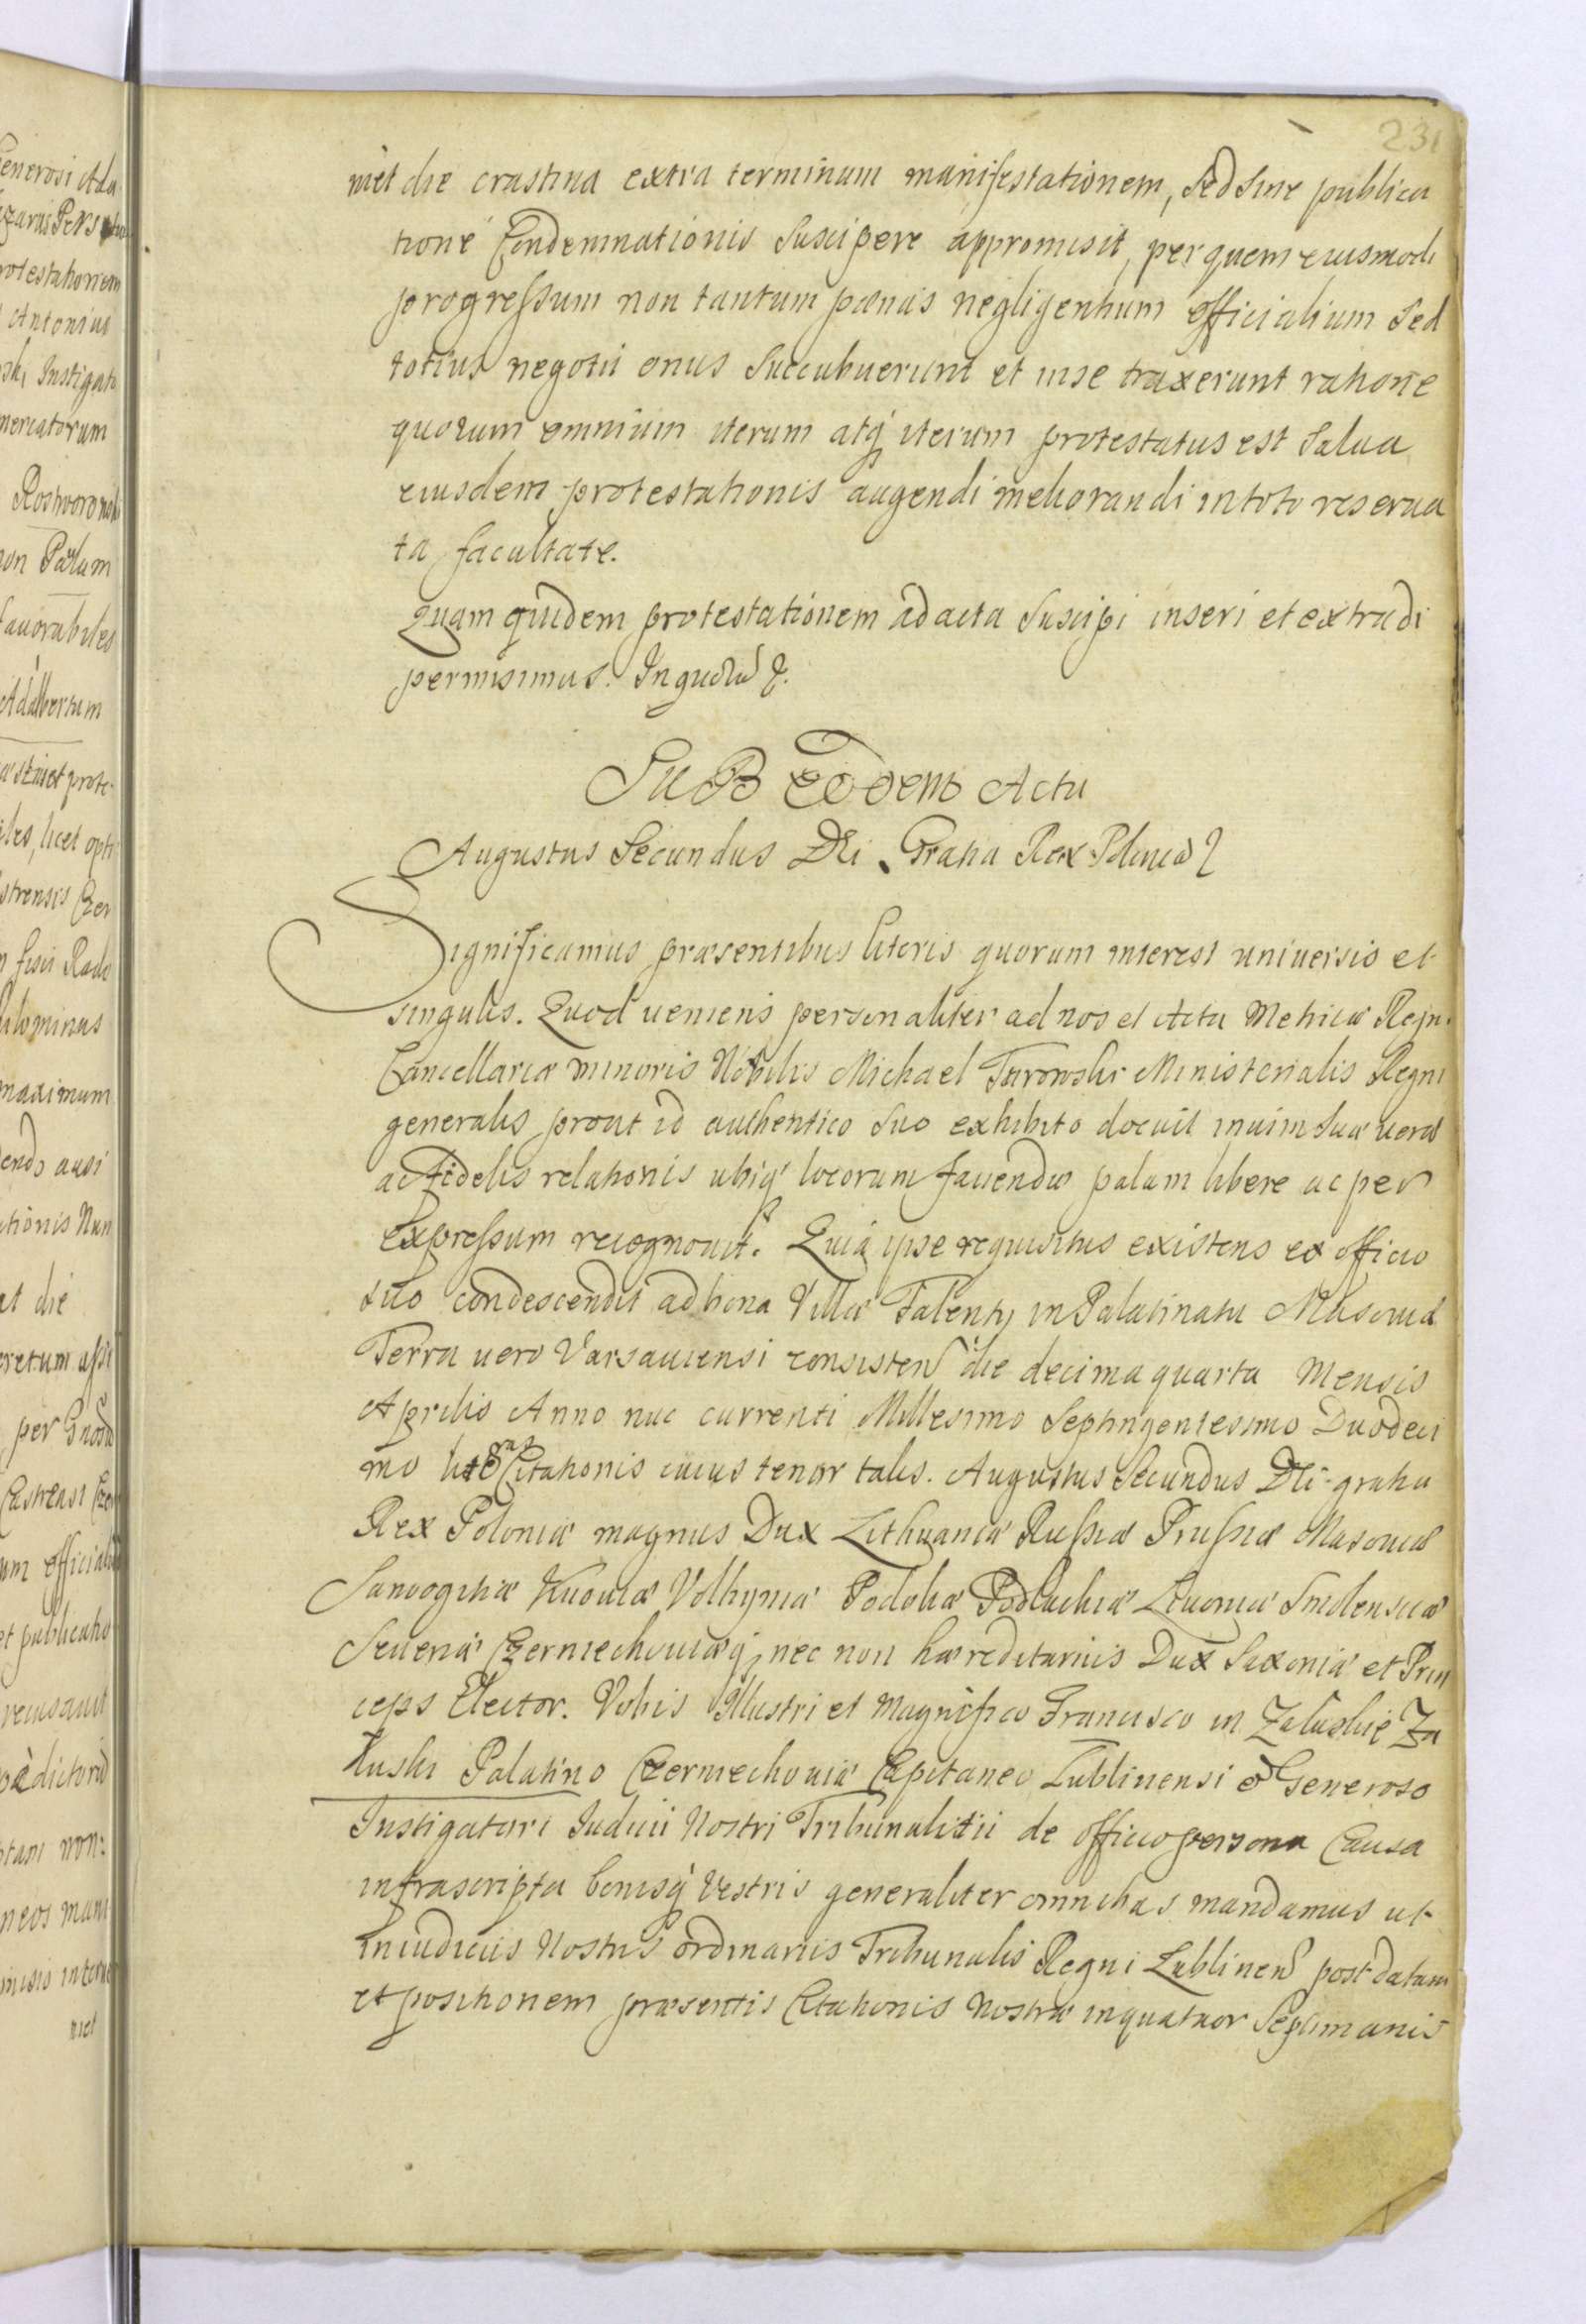 231
niet die crastina extra terminum manifestationem, sed sine publica
tione Condemnationis suscipere appromisit, per quem eiusmodi
progressum non tantum pænas negligentium officialium sed
totius negotii onus succubuerunt et in se traxerunt ratione
quorum omnium iterum atq iterum protestatus est salua
eiusdem protestationis augendi meliorandi in toto reserua
ta facultate.
Quam quidem protestationem ad acta suscipi inseri et extradi
permisimus. In quorū
Sub Eodem Actu
Augustus Secundus Dei Gratia Rex Poloniæ
Significamus præsentibus literis quorum interest uniuersis et
singulis. Quod ueniens personaliter ad nos et Acta Metricæ Regn.
Cancellariæ minoris Nobilis Michael Turowski Ministerialis Regni
generalis prout id authentico suo exhibito docuit in uim suæ ueræ
ac fidelis relationis ubiq locorum fauendæ palam libere ac per
expressum recognouit. Quia ipse requisitus existens ex officio
suo condescendit ad bona Villæ Falenty in Palatinatu Masouiæ
Terra uero Varsauiensi consisten die decima quarta Mensis
Aprilis Anno nuc currenti Millesimo Septingentesimo Duodeci
mo Citationis cuius tenor talis. Augustus Secundus Dei gratia
Rex Poloniæ magnus Dux Lithuaniæ Russiæ Prussiæ Masouiæ
Samogitiæ Kiiouiæ Volhyniæ Podoliæ Podlachiæ Liuoniæ Smolensciæ
Seueriæ Czerniechouiæq nec non hæreditarius Dux Saxoniæ et Prin
ceps Elector. Vobis Illustri et Magnifico Francisco in Zaluskie Za
łuski Palatino Czerniechouiæ Capitaneo Lublinensi & Generoso
Instigatori Iudicii Nostri Tribunalitii de officio persona Causa
infrascripta bonisq Vestris generaliter omnibus mandamus ut
in iudiciis Nostris ordinariis Tribunalis Regni Lublinen post datam
et positionem præsentis Citationis Nostræ in quatuor Septimanis